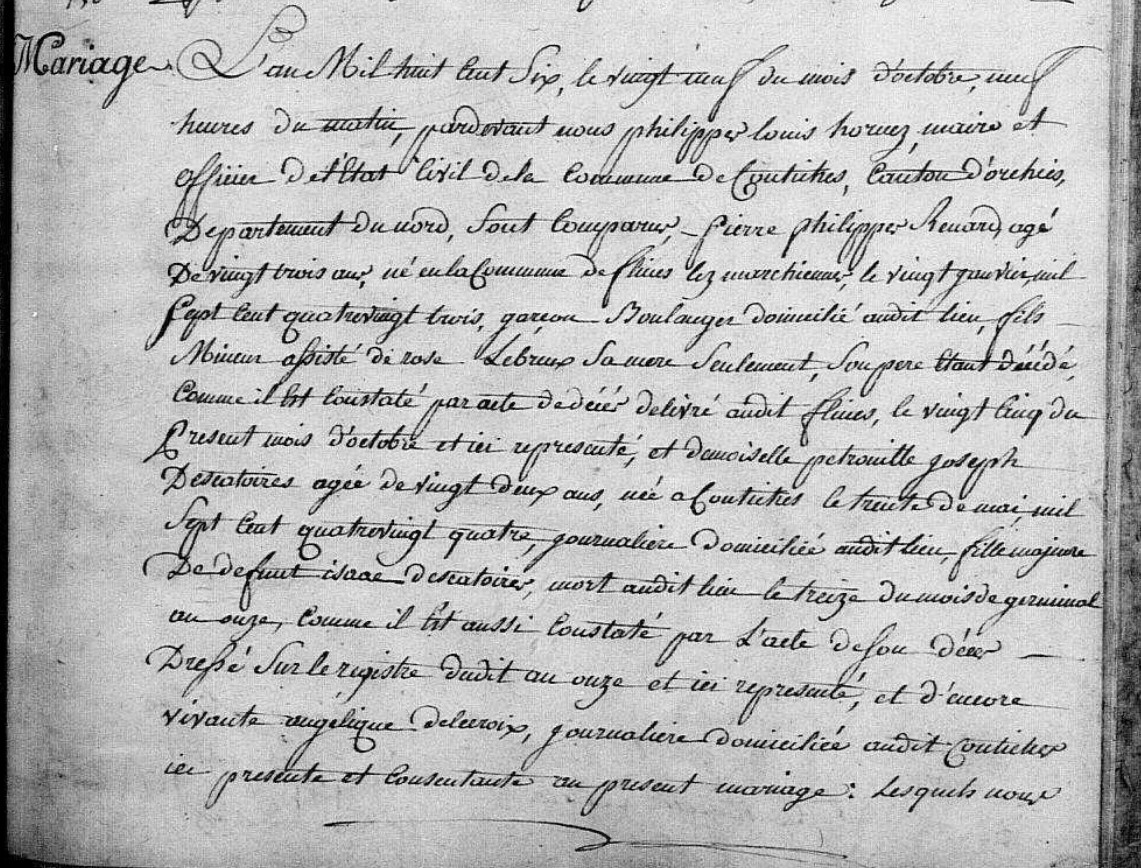 Mariage L'an Mil huit Cent Six, le vingt neuf du mois d'octobre, neuf
heures du matin, pardevant nous philippe louis hornez, maire et
officier de l'Etat Civil de la Commune de Coutiches, Canton d'orchies,
Departement du nord, Sont Comparus, Pierre philippe Renard, agé
De vingt trois ans, né en la Commune de flines lez marchiennes, le vingt janvier, mil
Sept Cent quatrevingt trois, garçon Boulanger domicilié audit lieu, fils
Mineur assisté de rose Lebreux Sa mere Seulement, Son pere Etant Décédé,
Comme il Est Constaté par acte de décés delivré audit flines, le vingt Cinq du
Present mois d'octobre et ici representé, et demoiselle petronille joseph
Descatoires agée de vingt deux ans, née a Coutiches le trente de mai mil
Sept Cent quatrevingt quatre, journaliere domiciliée audit lieu, fille majeure
De defunt isaac descatoires, mort audit lieu le treize du mois de germinal
an onze, Comme il Est aussi Constaté par L'acte de son décés
Dressé Sur le registre dudit an onze et ici representé, et d'encore
vivante angelique delecroix, journaliere domiciliée audit Coutiches
ici presente et Consentante au present mariage: Lesquels nous